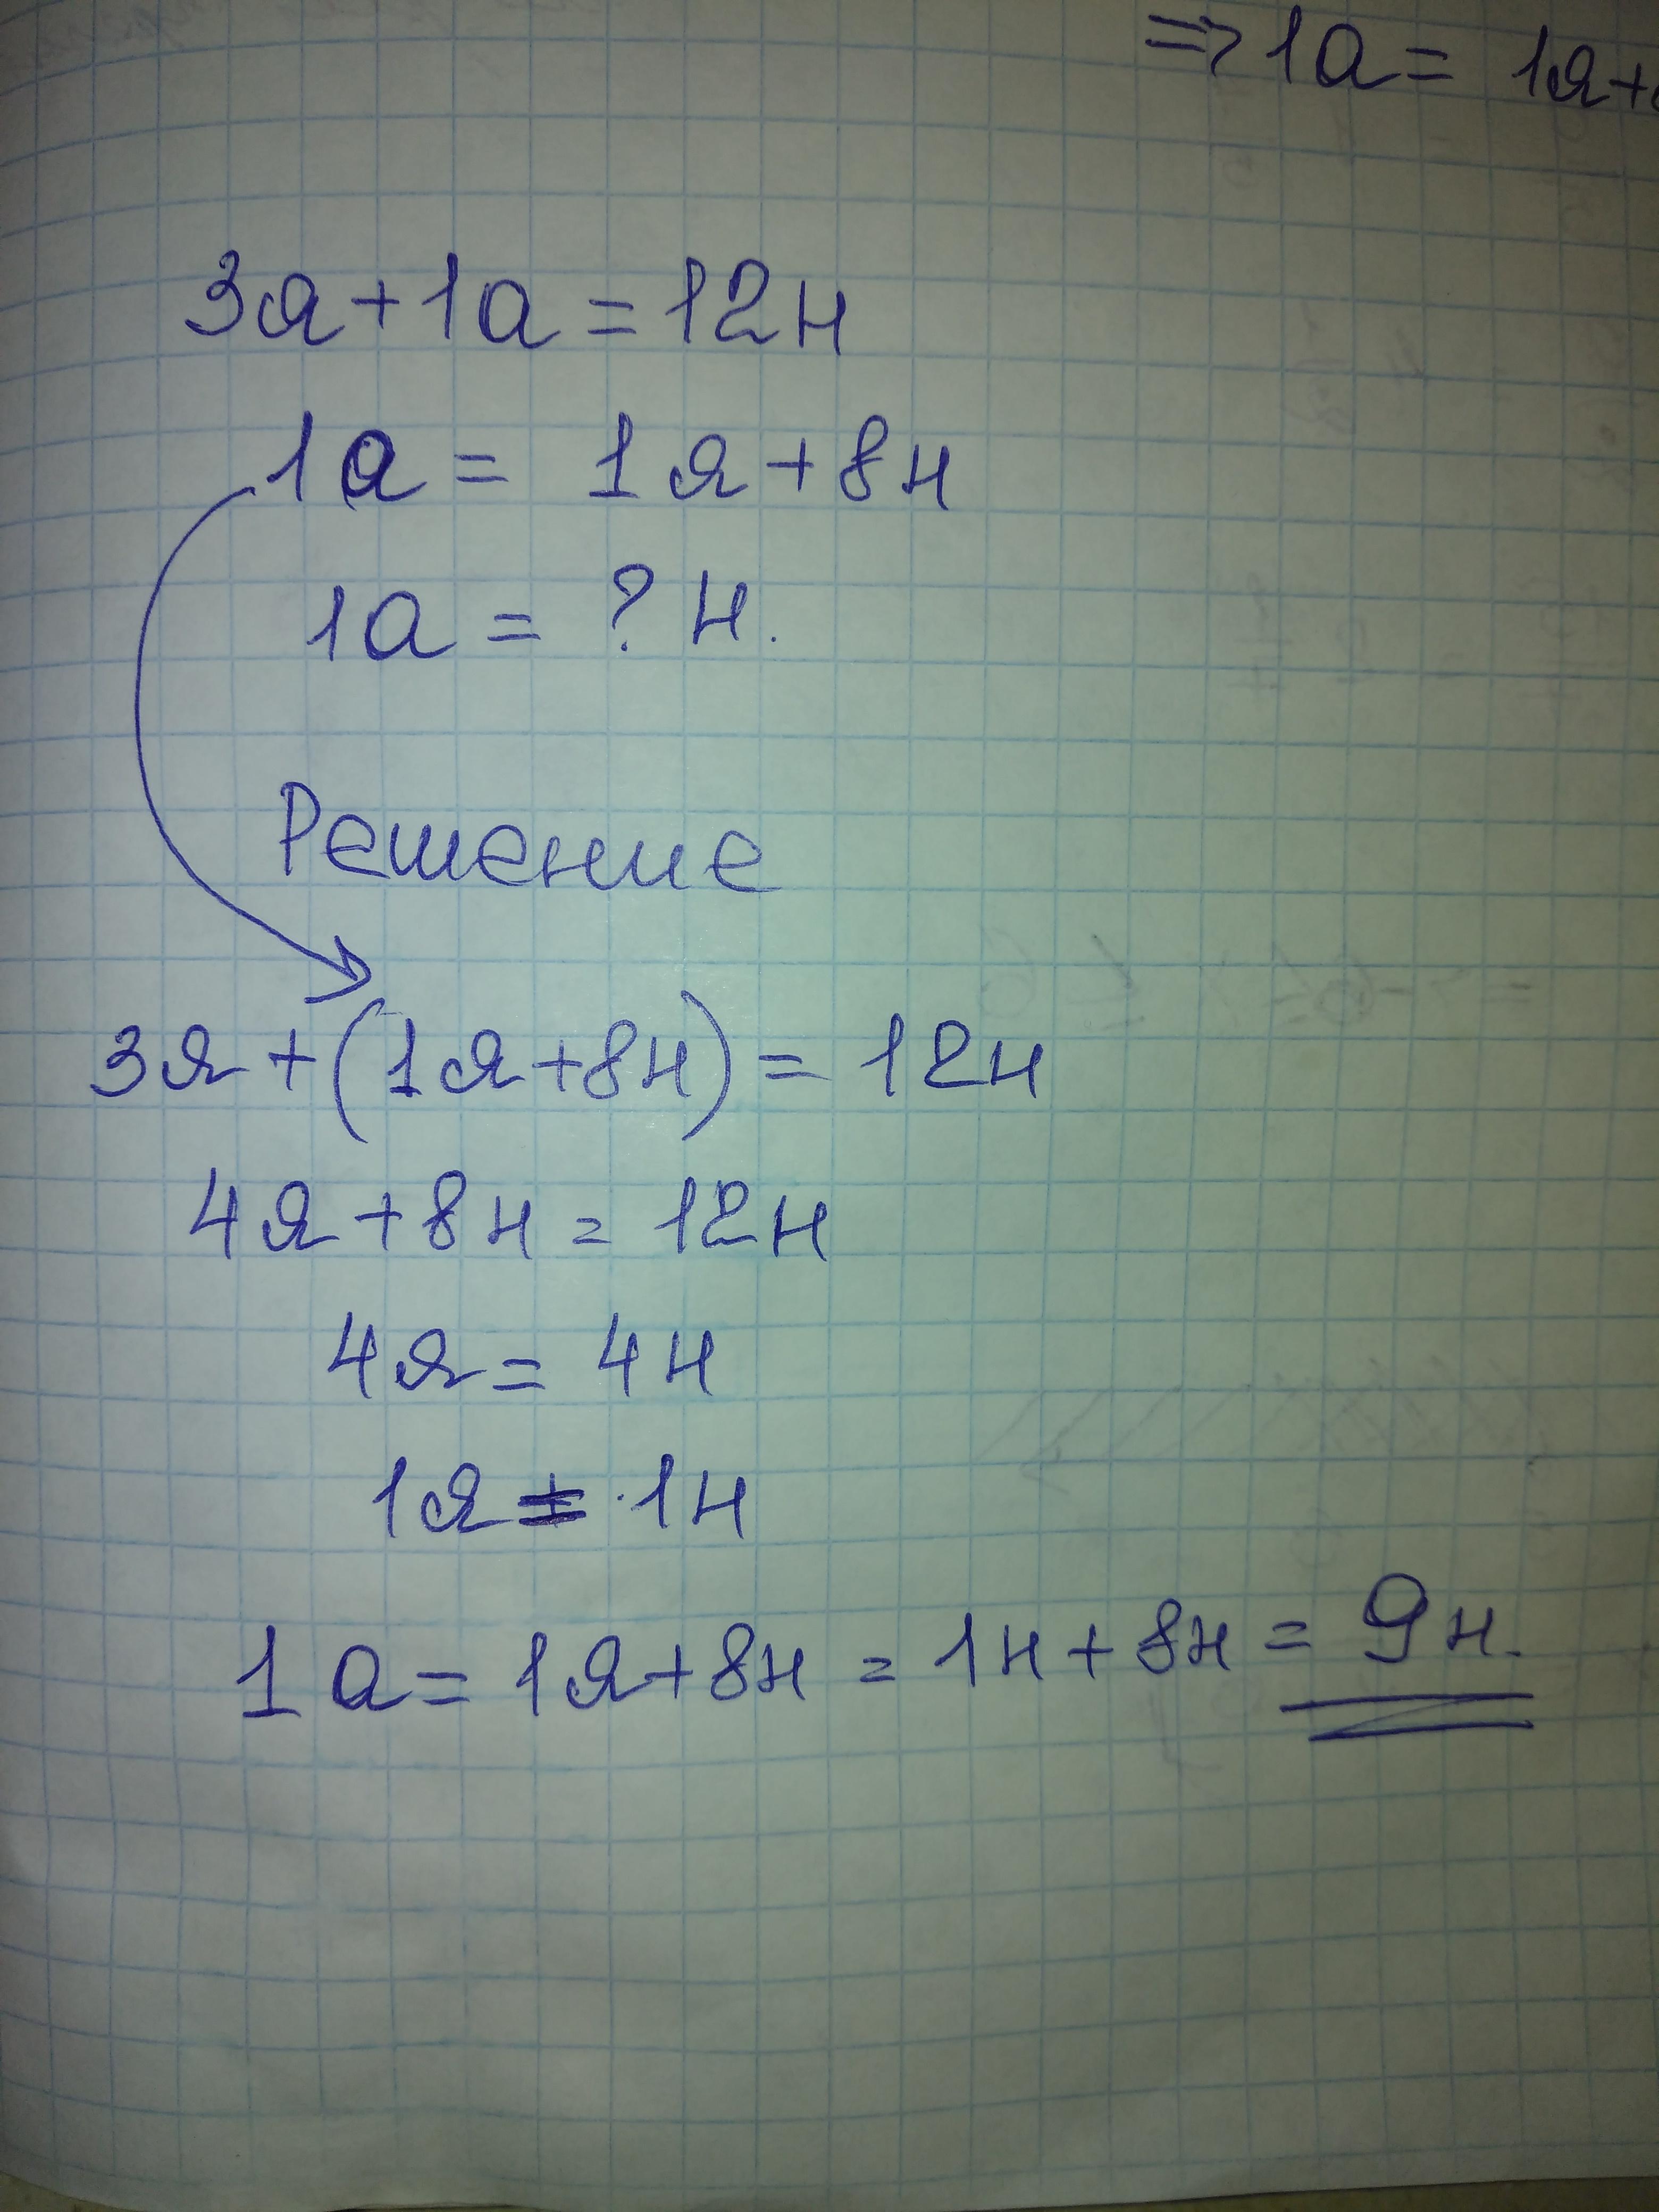 => 1а = 1я+
3я+1а=12н
1а = 1я+8н
1а = ? н.
Решение
3я+(1я+8н)=12н
4я+8н=12н
4я=4н
1я=1н
1а=1я+8н=1н+8н=9н.